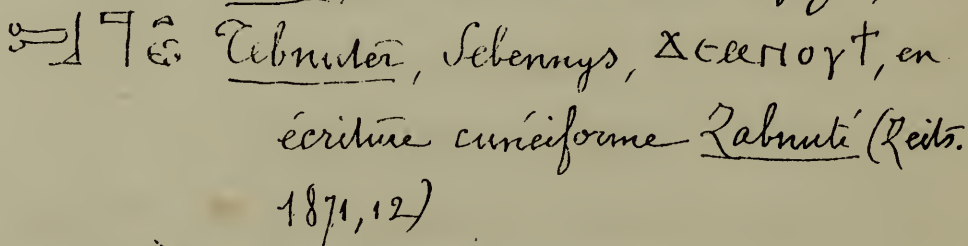 Tebnuter, Sebennys, ϫⲉⲙⲛⲟⲩϯ, en
écriture cunéiforme Zabnuté (Zeits.
1871, 12)